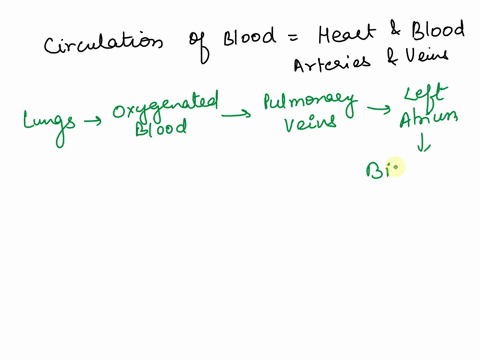 Circulation of Blood = Heart & Blood
Arteries & Veins
Lungs → Oxygenated Blood → Pulmonary Veins → Left Atrium
↓
Bi